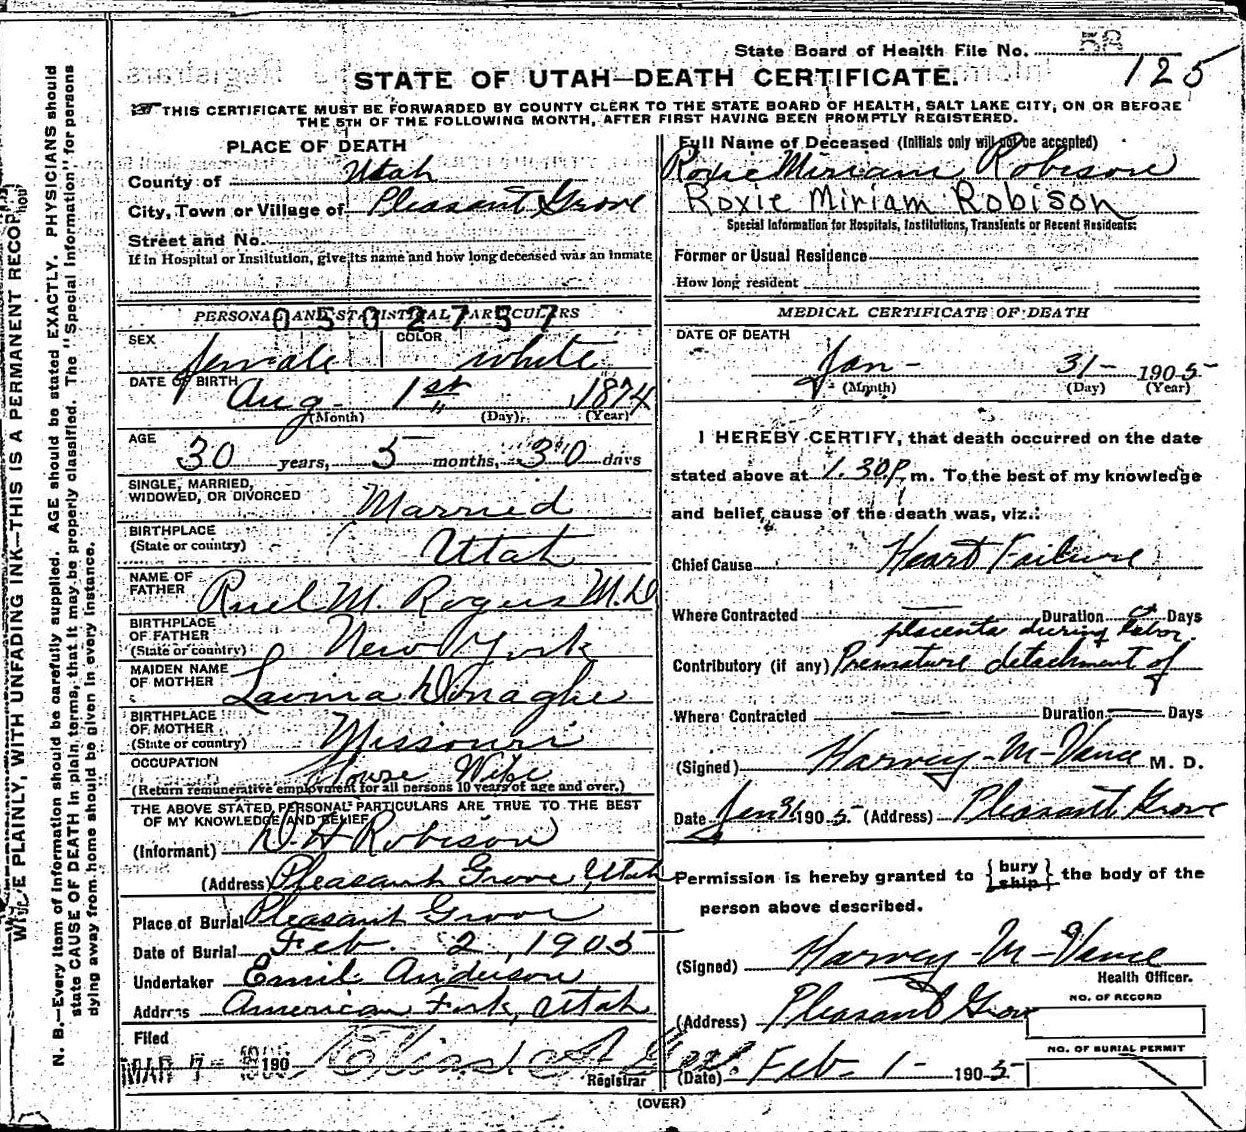 State Board of Health File No. 58
125
STATE OF UTAH—DEATH CERTIFICATE.
THIS CERTIFICATE MUST BE FORWARDED BY COUNTY CLERK TO THE STATE BOARD OF HEALTH, SALT LAKE CITY, ON OR BEFORE
THE 5TH OF THE FOLLOWING MONTH, AFTER FIRST HAVING BEEN PROMPTLY REGISTERED.
PLACE OF DEATH
County of Utah
City, Town or Village of Pleasant Grove
Street and No.
If in Hospital or Institution, give its name and how long deceased was an inmate
0502757
PERSONAL AND STATISTICAL PARTICULARS
SEX female COLOR white
DATE OF BIRTH Aug - 1st 1874
(Month) (Day) (Year)
AGE
30 years, 5 months, 30 days
SINGLE, MARRIED,
WIDOWED, OR DIVORCED Married
BIRTHPLACE
(State or country) Utah
NAME OF
FATHER Ruel M. Rogers M.D
BIRTHPLACE
OF FATHER
(State or country) New York
MAIDEN NAME
OF MOTHER Lavina Donaghe
BIRTHPLACE
OF MOTHER
(State or country) Missouri
OCCUPATION House Wife
(Return remunerative employment for all persons 10 years of age and over.)
THE ABOVE STATED PERSONAL PARTICULARS ARE TRUE TO THE BEST
OF MY KNOWLEDGE AND BELIEF
(Informant) D. H Robison
(Address) Pleasant Grove Utah
Place of Burial Pleasant Grove
Date of Burial Feb. 2, 1905
Undertaker Emil Anderson
Address American Fork, Utah
Filed
MAR 7 - 1905 190
Registrar
Full Name of Deceased (Initials only will not be accepted)
Roxie Miriam Robison
Roxie Miriam Robison
Special Information for Hospitals, Institutions, Transients or Recent Residents:
Former or Usual Residence
How long resident
MEDICAL CERTIFICATE OF DEATH
DATE OF DEATH
Jan - 31 - 1905
(Month) (Day) (Year)
I HEREBY CERTIFY, that death occurred on the date
stated above at 1.30 P. m. To the best of my knowledge
and belief, cause of the death was, viz.:
Chief Cause Heart Failure
Where Contracted — Duration Days
placenta during labor.
Contributory (if any) Premature detachment of
Where Contracted — Duration — Days
(Signed) Harvey - M - Vance M. D.
Date Jan 31 1905. (Address) Pleasant Grove
Permission is hereby granted to {bury ship} the body of the
person above described.
(Signed) Harvey - M - Vance
Health Officer.
(Address) Pleasant Grove
NO. OF RECORD
NO. OF BURIAL PERMIT
(Date) Feb - 1 - 1905
(OVER)
WRITE PLAINLY, WITH UNFADING INK—THIS IS A PERMANENT RECORD
N. B.—Every item of information should be carefully supplied. AGE should be stated EXACTLY. PHYSICIANS should
state CAUSE OF DEATH in plain terms, that it may be properly classified. The "Special Information" for persons
dying away from home should be given in every instance.